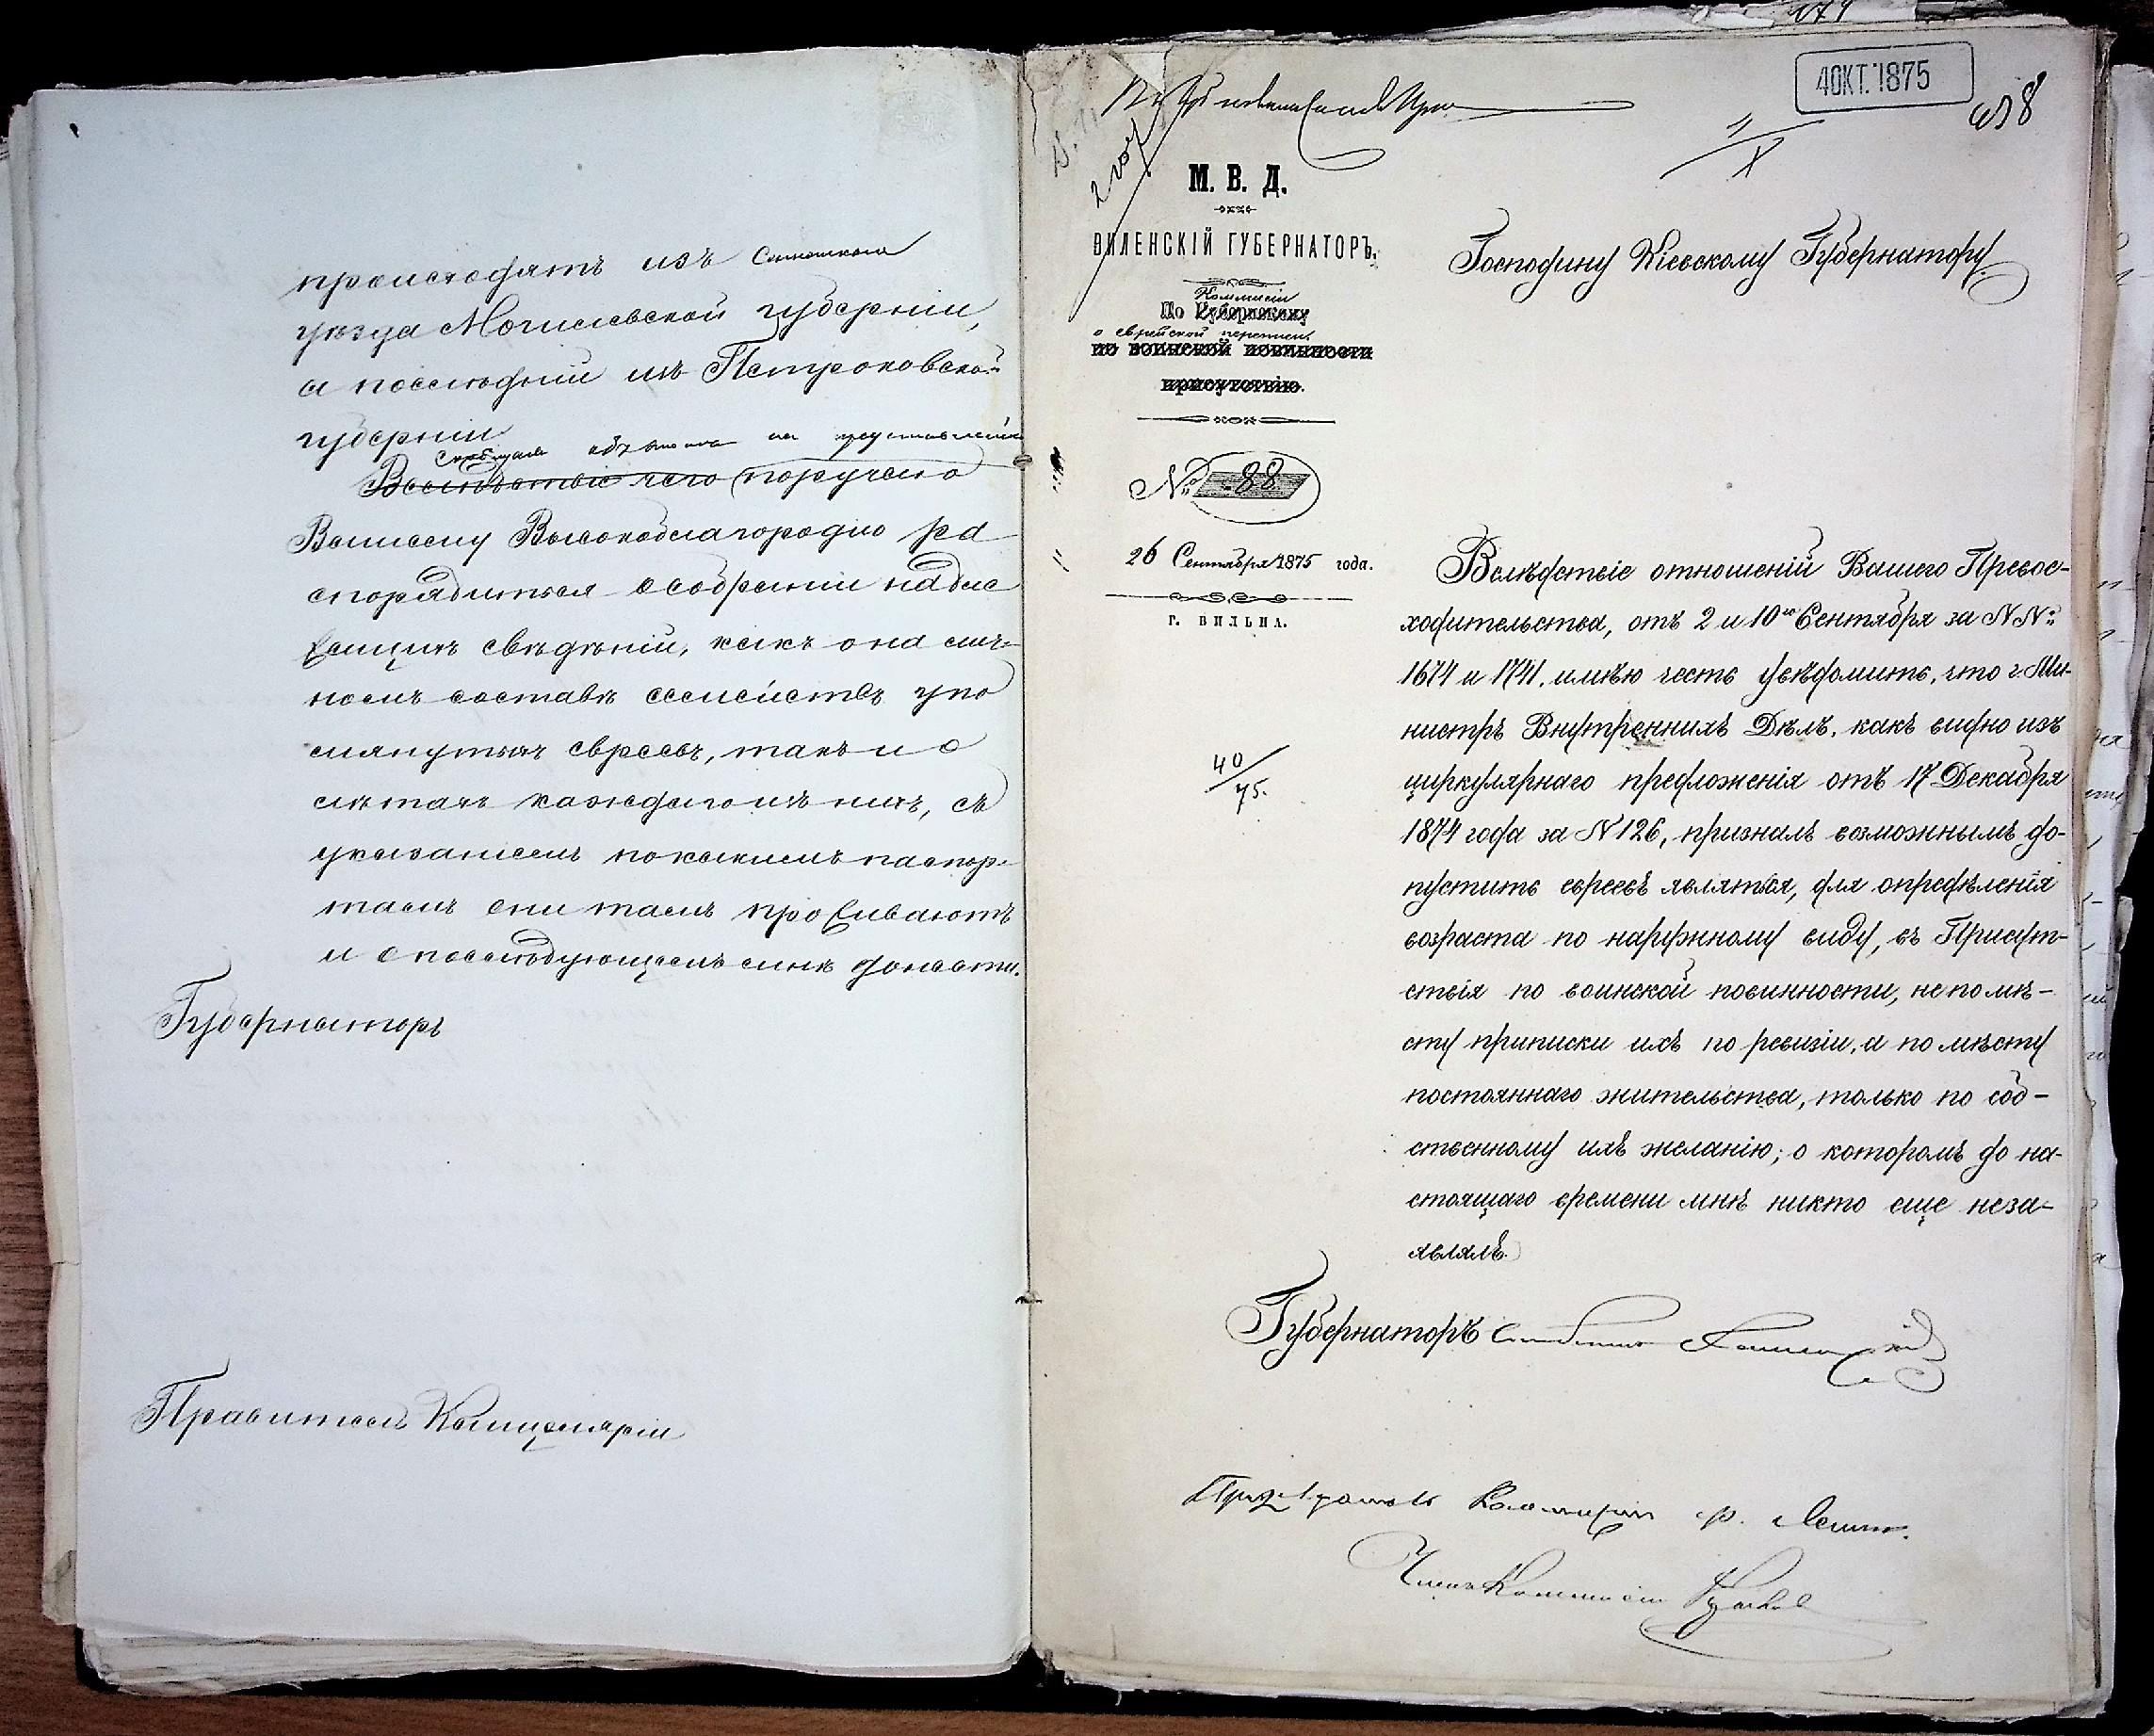 происходятъ изъ
уѣзда Могилевской губерніи,
а послѣдній изъ Петроковской
губерніи
Вслѣдствіе чего поручено
Вашему Высокоблагородію ра
спорядиться о собраніи надле
жащихъ свѣдѣній, какъ о на лич-
номъ составѣ семействъ упо
мянутыхъ евреевъ, такъ и о
лѣтахъ каждаго изъ нихъ, съ
указаніемъ по какимъ паспор-
тамъ они тамъ проживаютъ
и о послѣдующемъ мнѣ донести.
Губернаторъ
Правитель Канцеляріи
4 ОКТ. 1875
М. В. Д.
ВИЛЕНСКІЙ ГУБЕРНАТОРЪ.
Коммисіи
По Губернскому
о еврейской перепи
по воинской повинности
присутствію.
№ 88
26 Сентября 1875 года.
г. ВИЛЬНА.
40/75.
Господину Кіевскому Губернатору.
Вслѣдствіе отношеній Вашего Превос-
ходительства, отъ 2 и 10го Сентября за №№
1674 и 1741, имѣю честь увѣдомить, что г. Ми-
нистръ Внутреннихъ Дѣлъ, какъ видно изъ
циркулярнаго предложенія отъ 17 Декабря
1874 года за № 126, призналъ возможнымъ до-
пустить евреевъ являться, для опредѣленія
возраста по наружному виду, въ Присут-
ствія по воинской повинности, не по мѣ-
сту приписки ихъ по ревизіи, а по мѣсту
постояннаго жительства, только по соб-
ственному ихъ желанію; о которомъ до на-
стоящаго времени мнѣ никто еще неза-
являлъ.
Губернаторъ
Предсѣдатель Коммисіи
Членъ Коммисіи